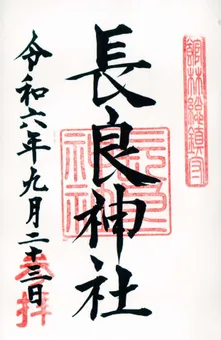 館林總鎮守
長良神社
令和六年九月二十三日
参拝
長良神社